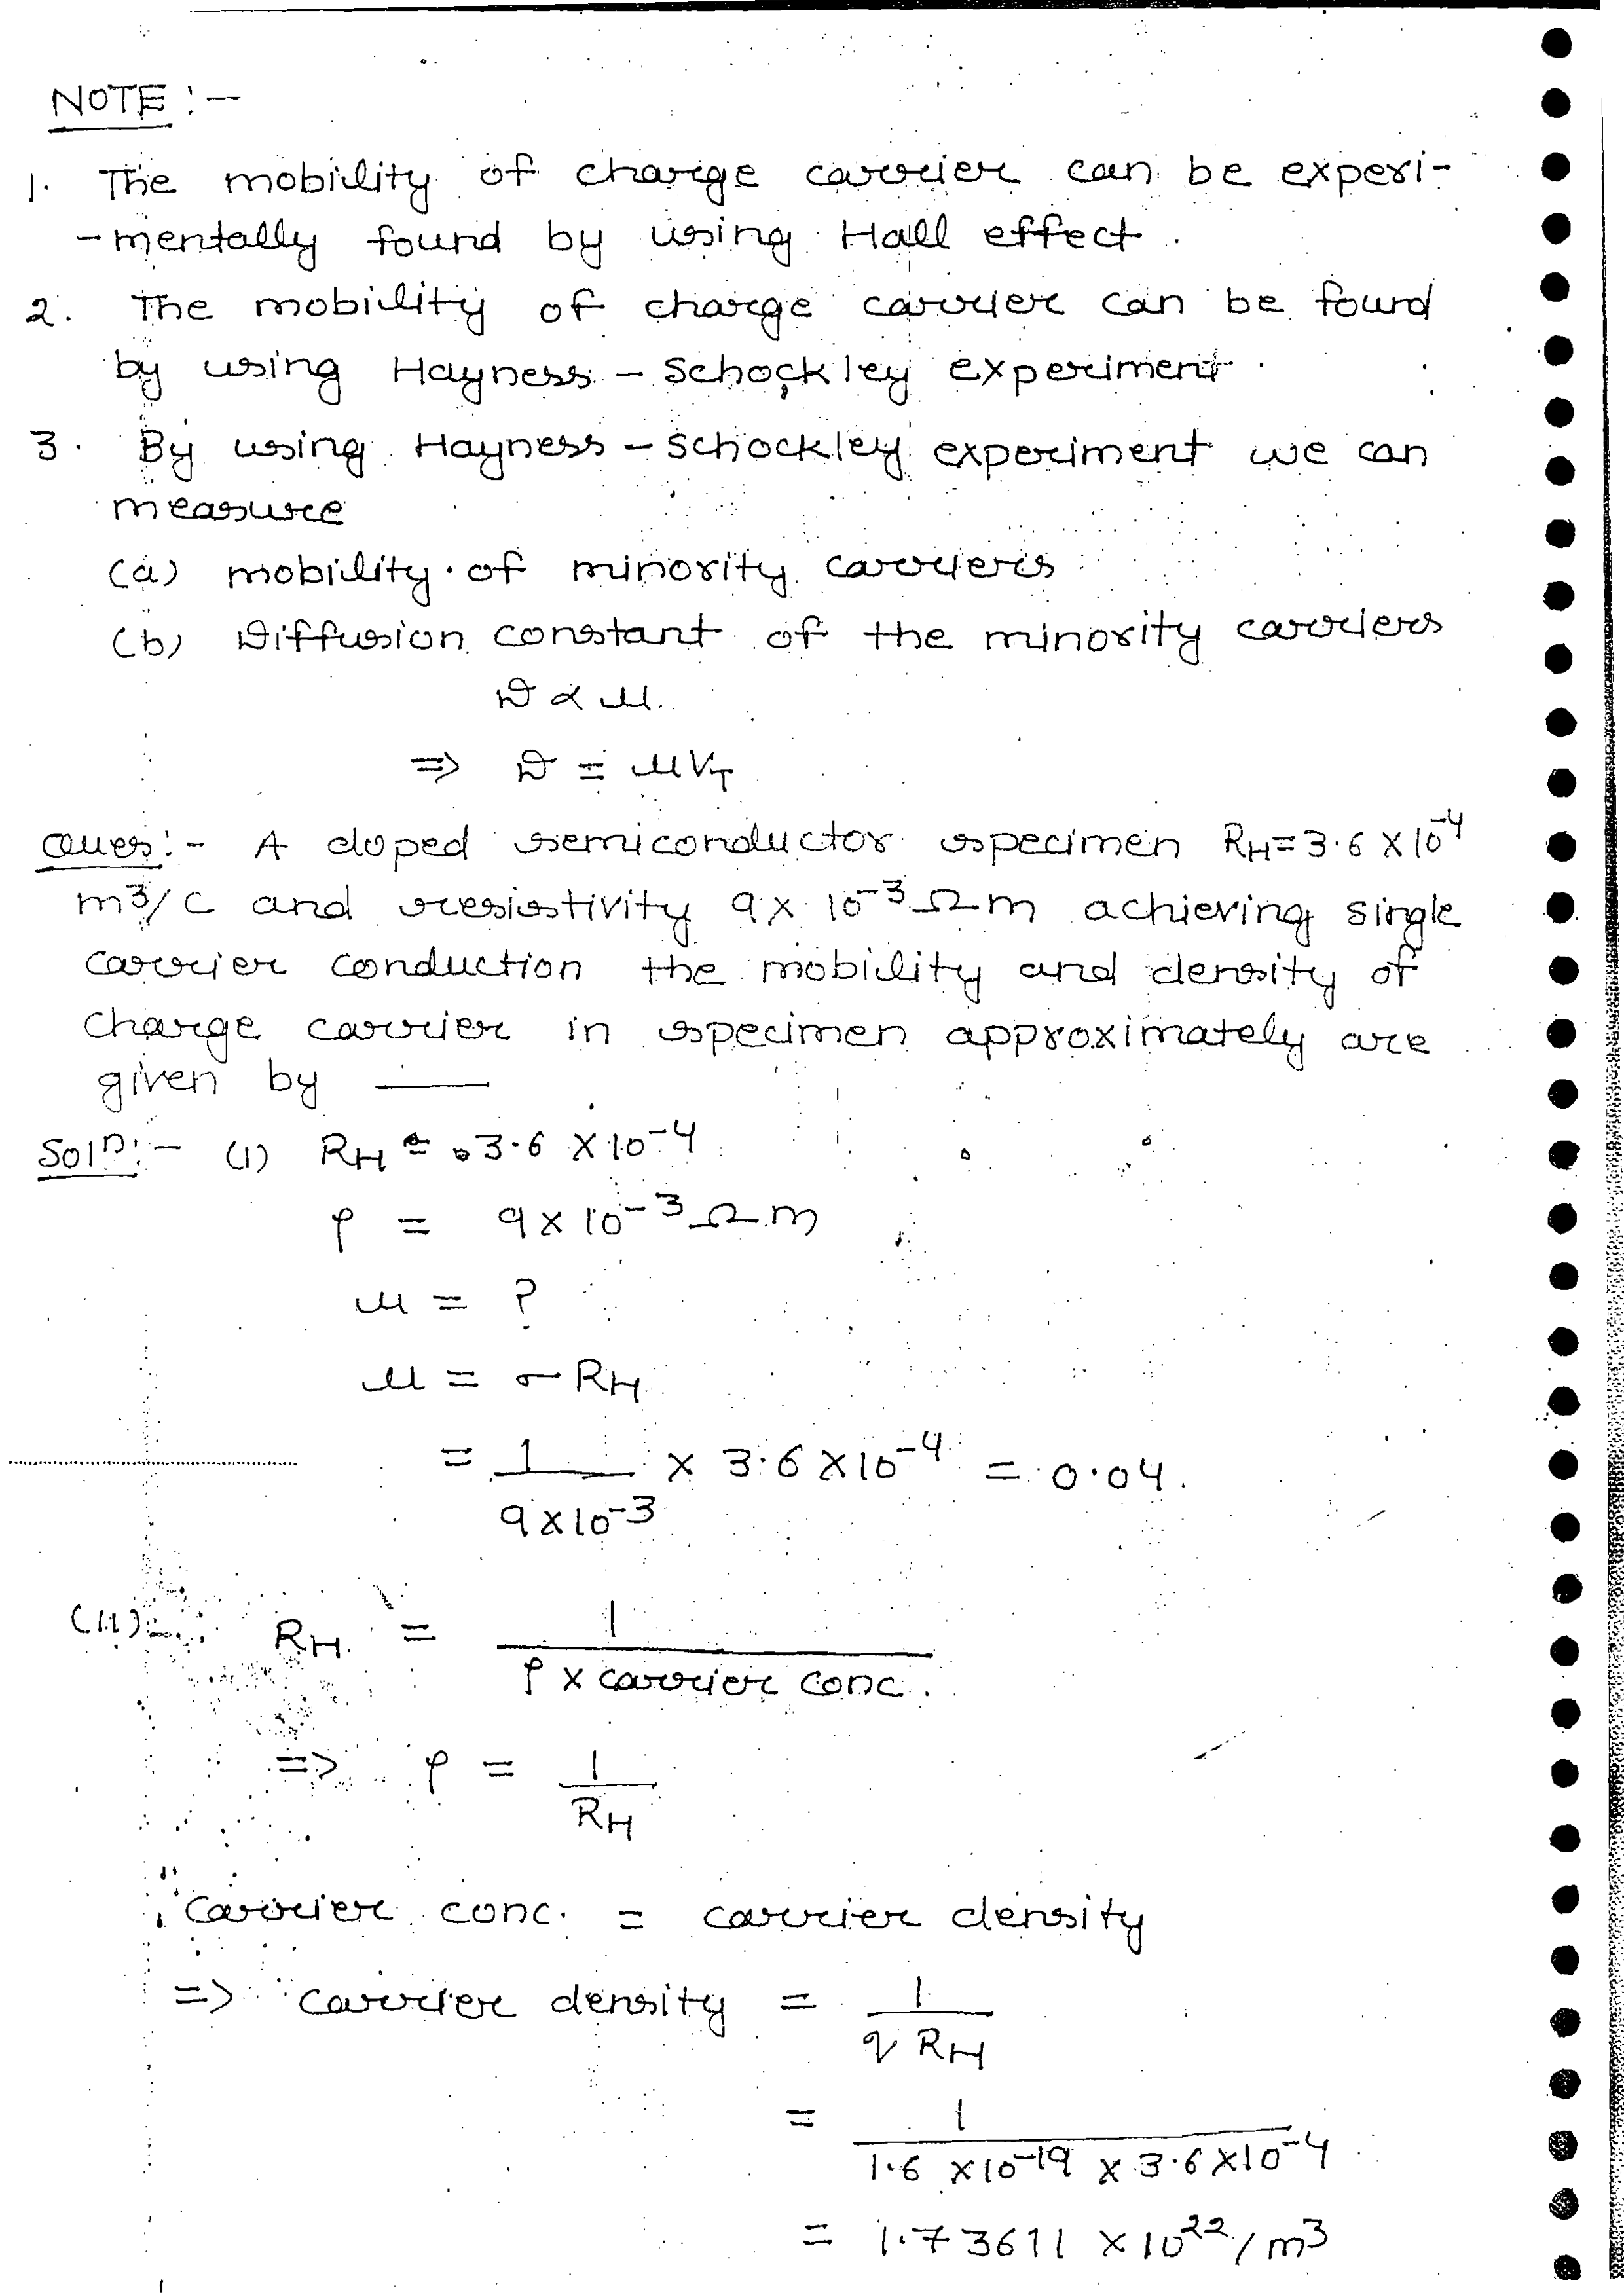 NOTE :-
1. The mobility of charge carrier can be experi-
-mentally found by using Hall effect.
2. The mobility of charge carrier can be found
by using Hayness - Schockley experiment.
3. By using Hayness - Schockley experiment we can
measure
(a) mobility of minority carriers
(b) Diffusion constant of the minority carriers
D ∝ μ.
=> D = μV_T
Ques:- A doped semiconductor specimen R_H = 3.6 × 10^-4
m^3/C and resistivity 9 × 10^-3 Ωm achieving single
carrier conduction the mobility and density of
charge carrier in specimen approximately are
given by ——
Sol^n:- (i) R_H = 3.6 × 10^-4
ρ = 9 × 10^-3 Ωm
μ = ?
μ = σ R_H
= 1/(9 × 10^-3) × 3.6 × 10^-4 = 0.04.
(ii):- R_H = 1/(ρ × carrier conc.)
=> ρ = 1/R_H
carrier conc. = carrier density
=> carrier density = 1/(q R_H)
= 1/(1.6 × 10^-19 × 3.6 × 10^-4)
= 1.73611 × 10^22 / m^3